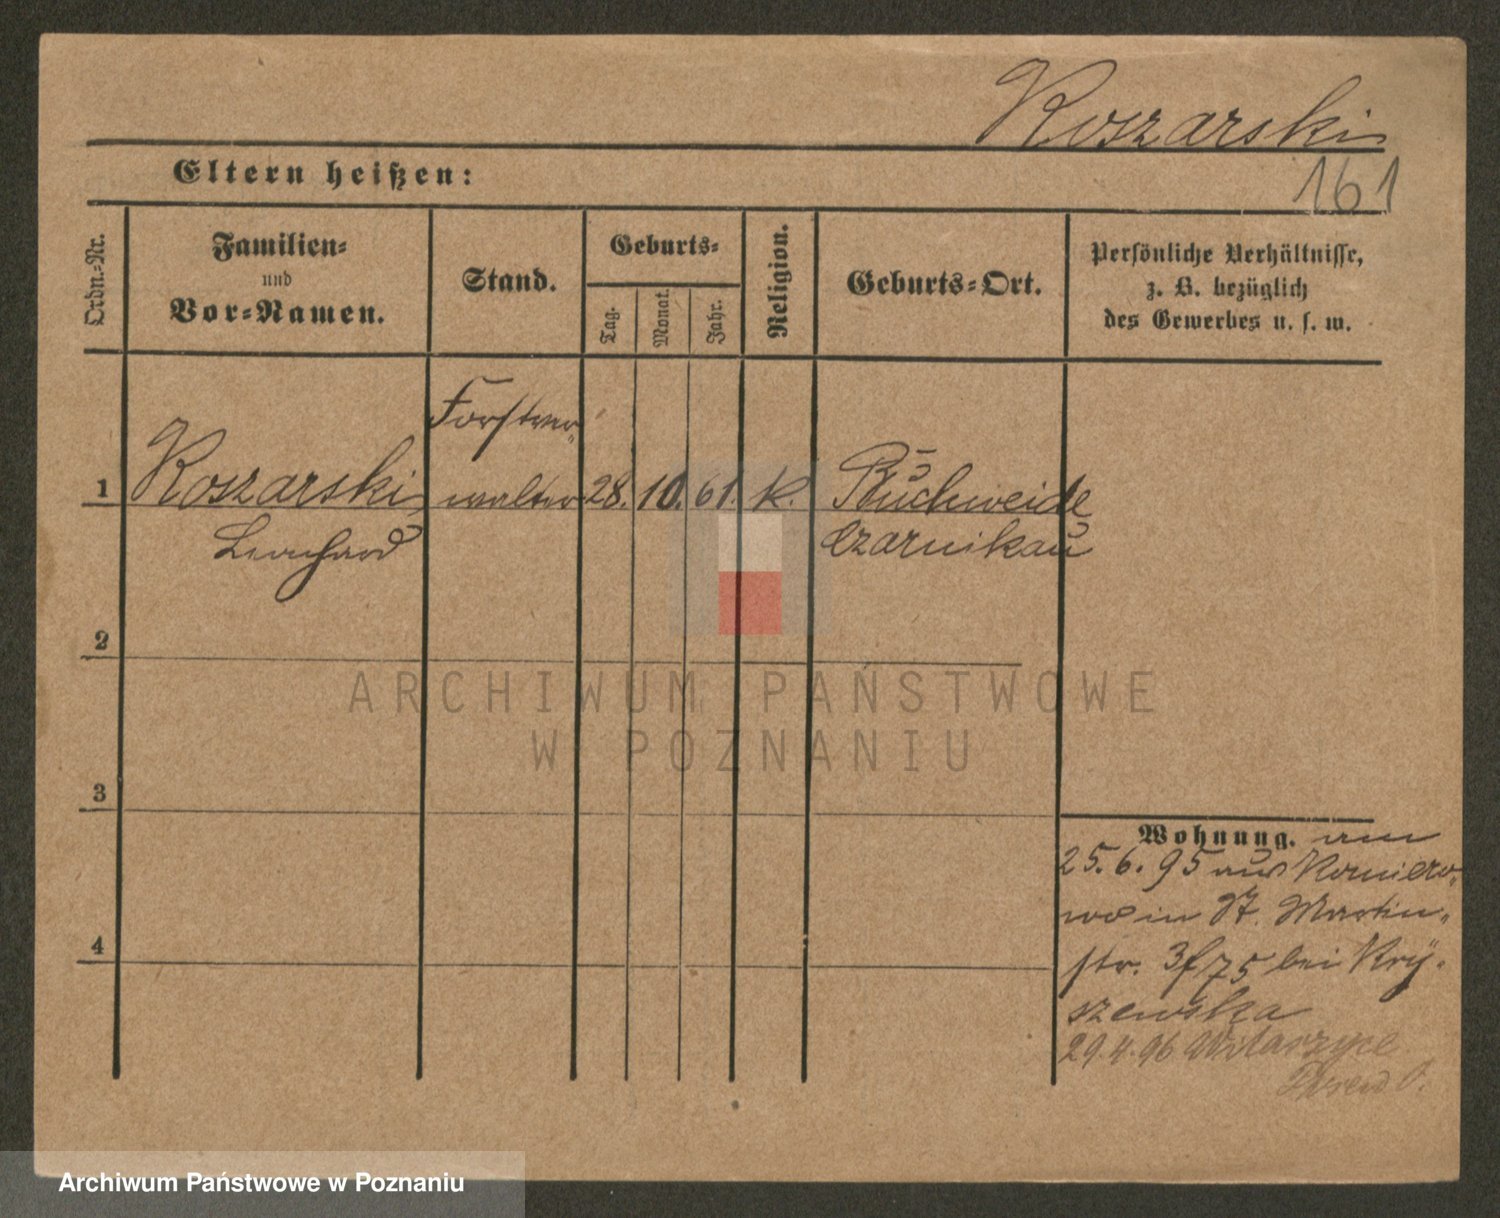 Koszarski
161
Eltern heißen:
Ordn.-Nr.
Familien-
und
Vor-Namen.
Stand.
Geburts-
Tag.
Monat.
Jahr.
Religion.
Geburts-Ort.
Persönliche Verhältnisse,
z. B. bezüglich
des Gewerbes u. s. w.
Forstver-
1 Koszarski walter 28. 10. 61. k. Buchweide
Leonhard Czarnikau
2
3
4
Wohnung. am
25.6.95 aus Komiero-
wo in St. Martin-
str. 3f 75 bei Kry-
szewska
29.4.96 Witaszyce
ARCHIWUM PAŃSTWOWE
W POZNANIU
Archiwum Państwowe w Poznaniu